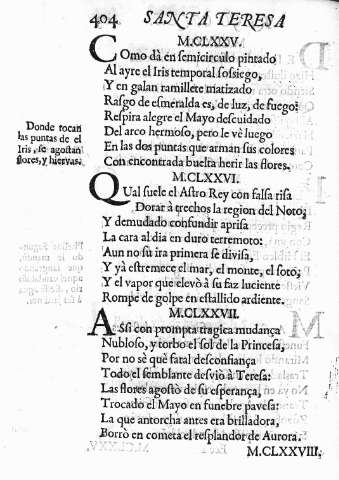 404 SANTA TERESA
M.CLXXV.
COmo dà en semicirculo pintado
Al ayre el Iris temporal sossiego,
Y en galan ramillete matizado
Rasgo de esmeralda es, de luz, de fuego:
Respira alegre el Mayo descuidado
Del arco hermoso, pero le vè luego
En las dos puntas que arman sus colores
Con encontrada buelta herir las flores.
Donde tocan
las puntas de el
Iris, se agostan
flores, y hiervas.
M.CLXXVI.
QUal suele el Astro Rey con falsa risa
Dorar à trechos la region del Noto,
Y demudado confundir aprisa
La cara al dia en duro terremoto:
Aun no su ira primera se divisa,
Y yà estremece el mar, el monte, el soto,
Y el vapor que elevò à su faz luciente
Rompe de golpe en estallido ardiente.
M.CLXXVII.
ASsi con prompta tragica mudança
Nubloso, y torbo el sol de la Princesa,
Por no sè què fatal desconfiança
Todo el semblante desviò à Teresa:
Las flores agostò de su esperança,
Trocado el Mayo en funebre pavesa:
La que antorcha antes era brilladora,
Borrò en cometa el resplandor de Aurora.
M.CLXXVIII.